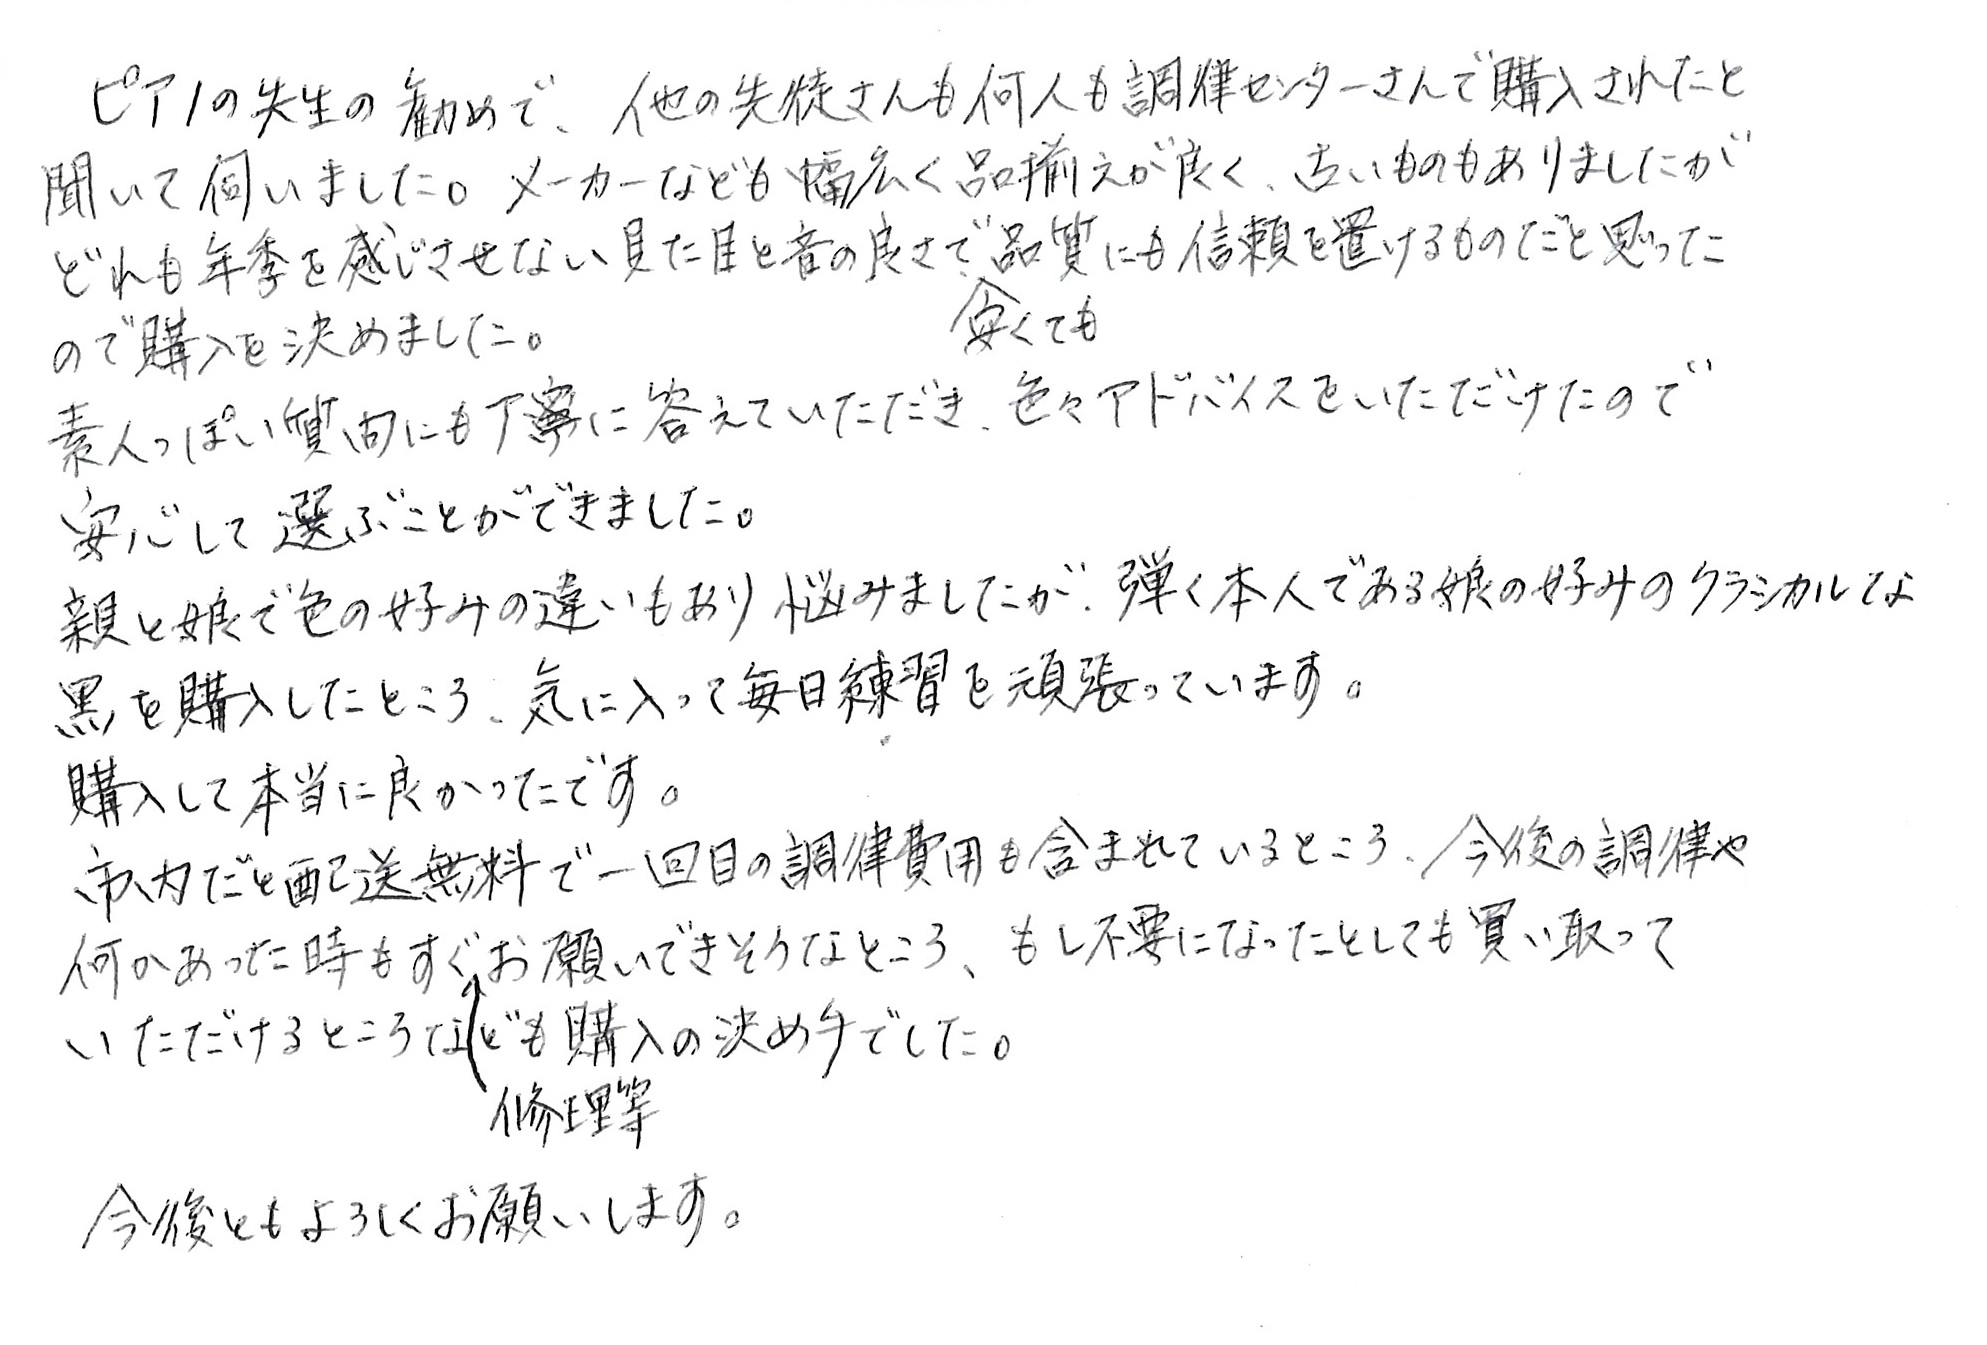 ピアノの先生の勧めで、他の先徒さんも何人も調律センターさんで購入されたと
聞いて伺いました。メーカーなども幅広く品揃えが良く、古いものもありましたが
どれも年季を感じさせない見た目と音の良さで、品質にも信頼を置けるものだと思った
安くても
ので購入を決めました。
素人っぽい質問にも丁寧に答えていただき、色々アドバイスをいただけたので
安心して選ぶことができました。
親と娘で色の好みの違いもあり悩みましたが、弾く本人である娘の好みのクラシカルな
黒を購入したところ、気に入って毎日練習を頑張っています。
購入して本当に良かったです。
市内だと配送無料で一回目の調律費用も含まれているところ、今後の調律や
何かあった時もすぐお願いできそうなところ、もし不要になったとしても買い取って
いただけるところなども購入の決め手でした。
修理等
今後ともよろしくお願いします。